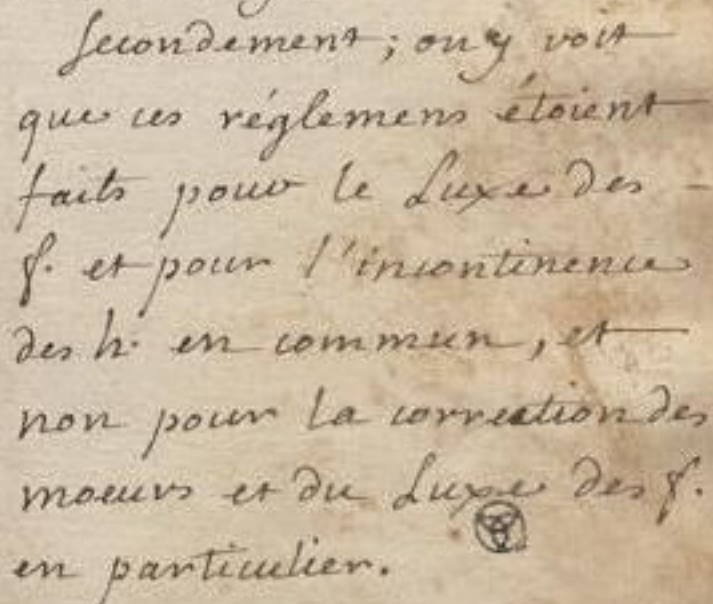 Secondement; on y voit
que ces réglemens étoient
faits pour le Luxe des -
f. et pour l'incontinence
des h. en commun, et
non pour la correction des
moeurs et du Luxe des f.
en particulier.